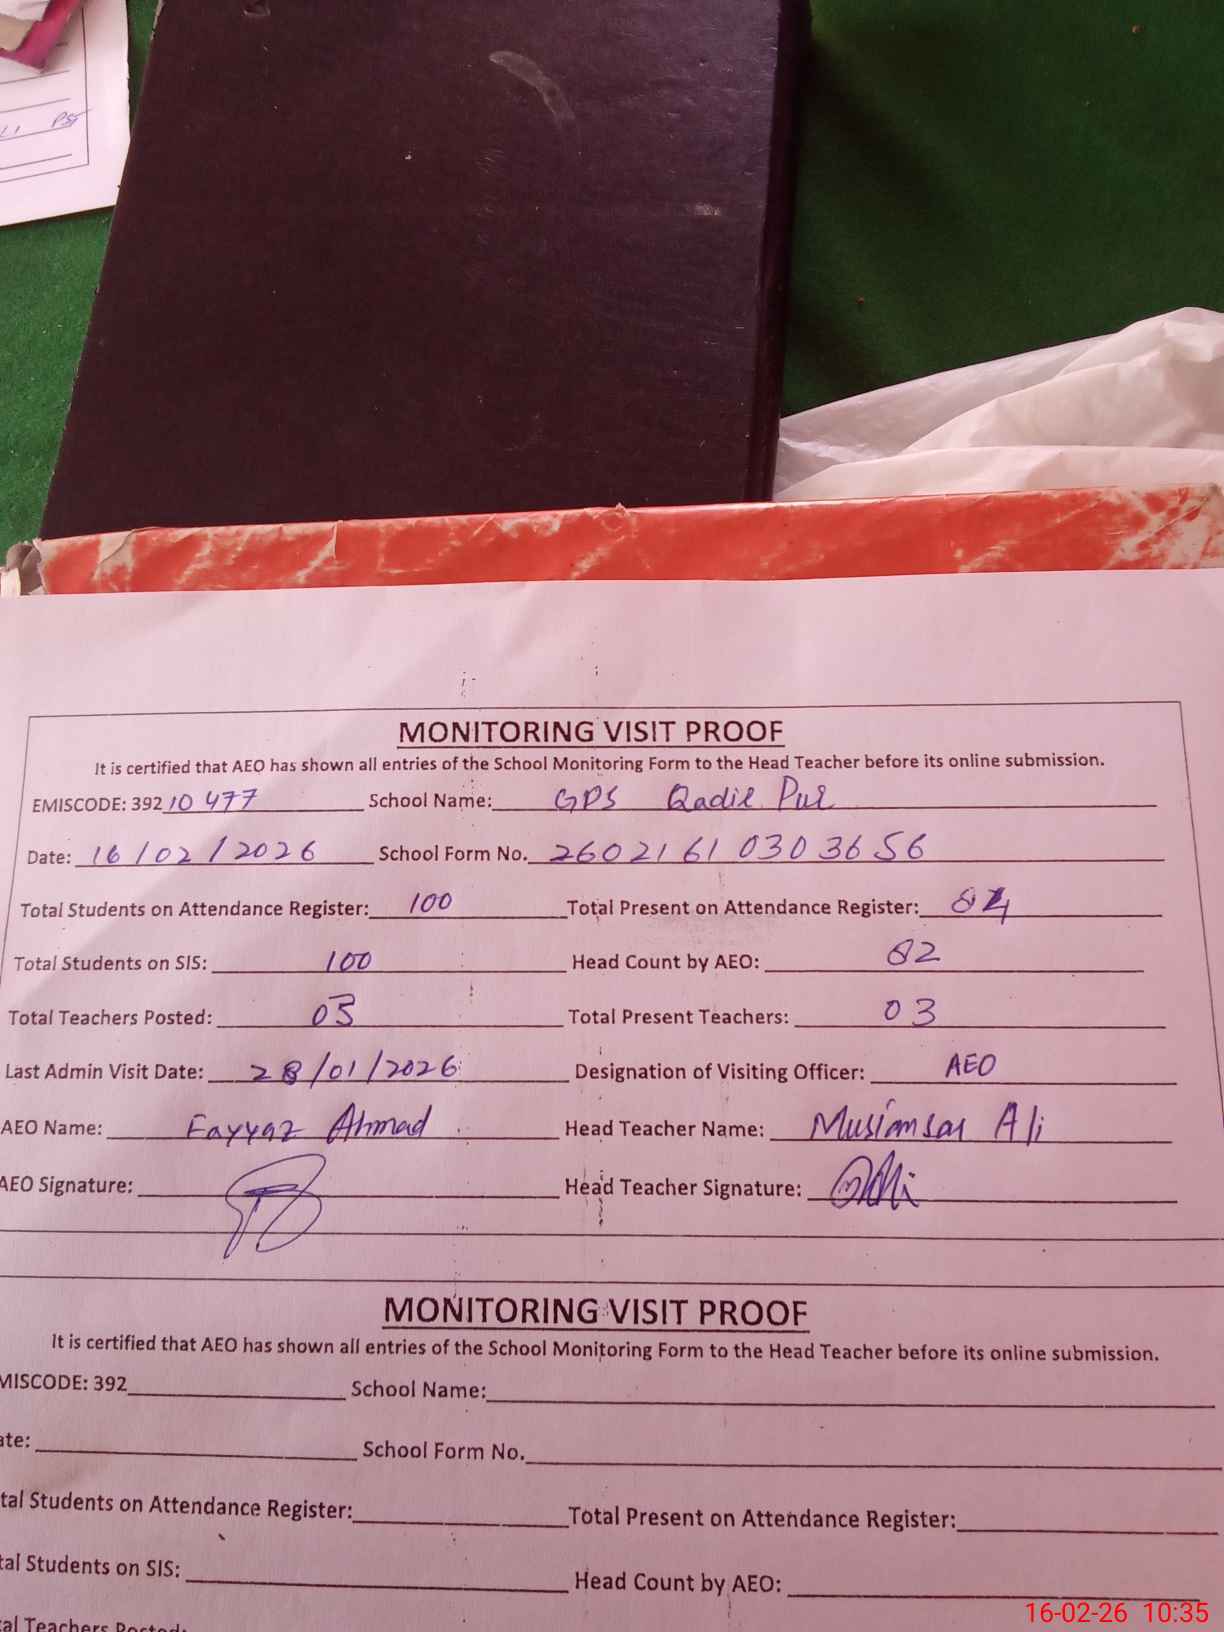 PST
MONITORING VISIT PROOF
It is certified that AEO has shown all entries of the School Monitoring Form to the Head Teacher before its online submission.
EMISCODE: 392 10 477 School Name: GPS Qadir Pur
Date: 16/02/2026 School Form No. 2602161030 3656
Total Students on Attendance Register: 100 Total Present on Attendance Register: 84
Total Students on SIS: 100 Head Count by AEO: 82
Total Teachers Posted: 03 Total Present Teachers: 03
Last Admin Visit Date: 28/01/2026 Designation of Visiting Officer: AEO
AEO Name: Fayyaz Ahmad Head Teacher Name: Ali
AEO Signature: Head Teacher Signature:
MONITORING VISIT PROOF
It is certified that AEO has shown all entries of the School Monitoring Form to the Head Teacher before its online submission.
MISCODE: 392 School Name:
ate: School Form No.
tal Students on Attendance Register: Total Present on Attendance Register:
tal Students on SIS: Head Count by AEO:
al Teachers Posted:
16-02-26 10:35